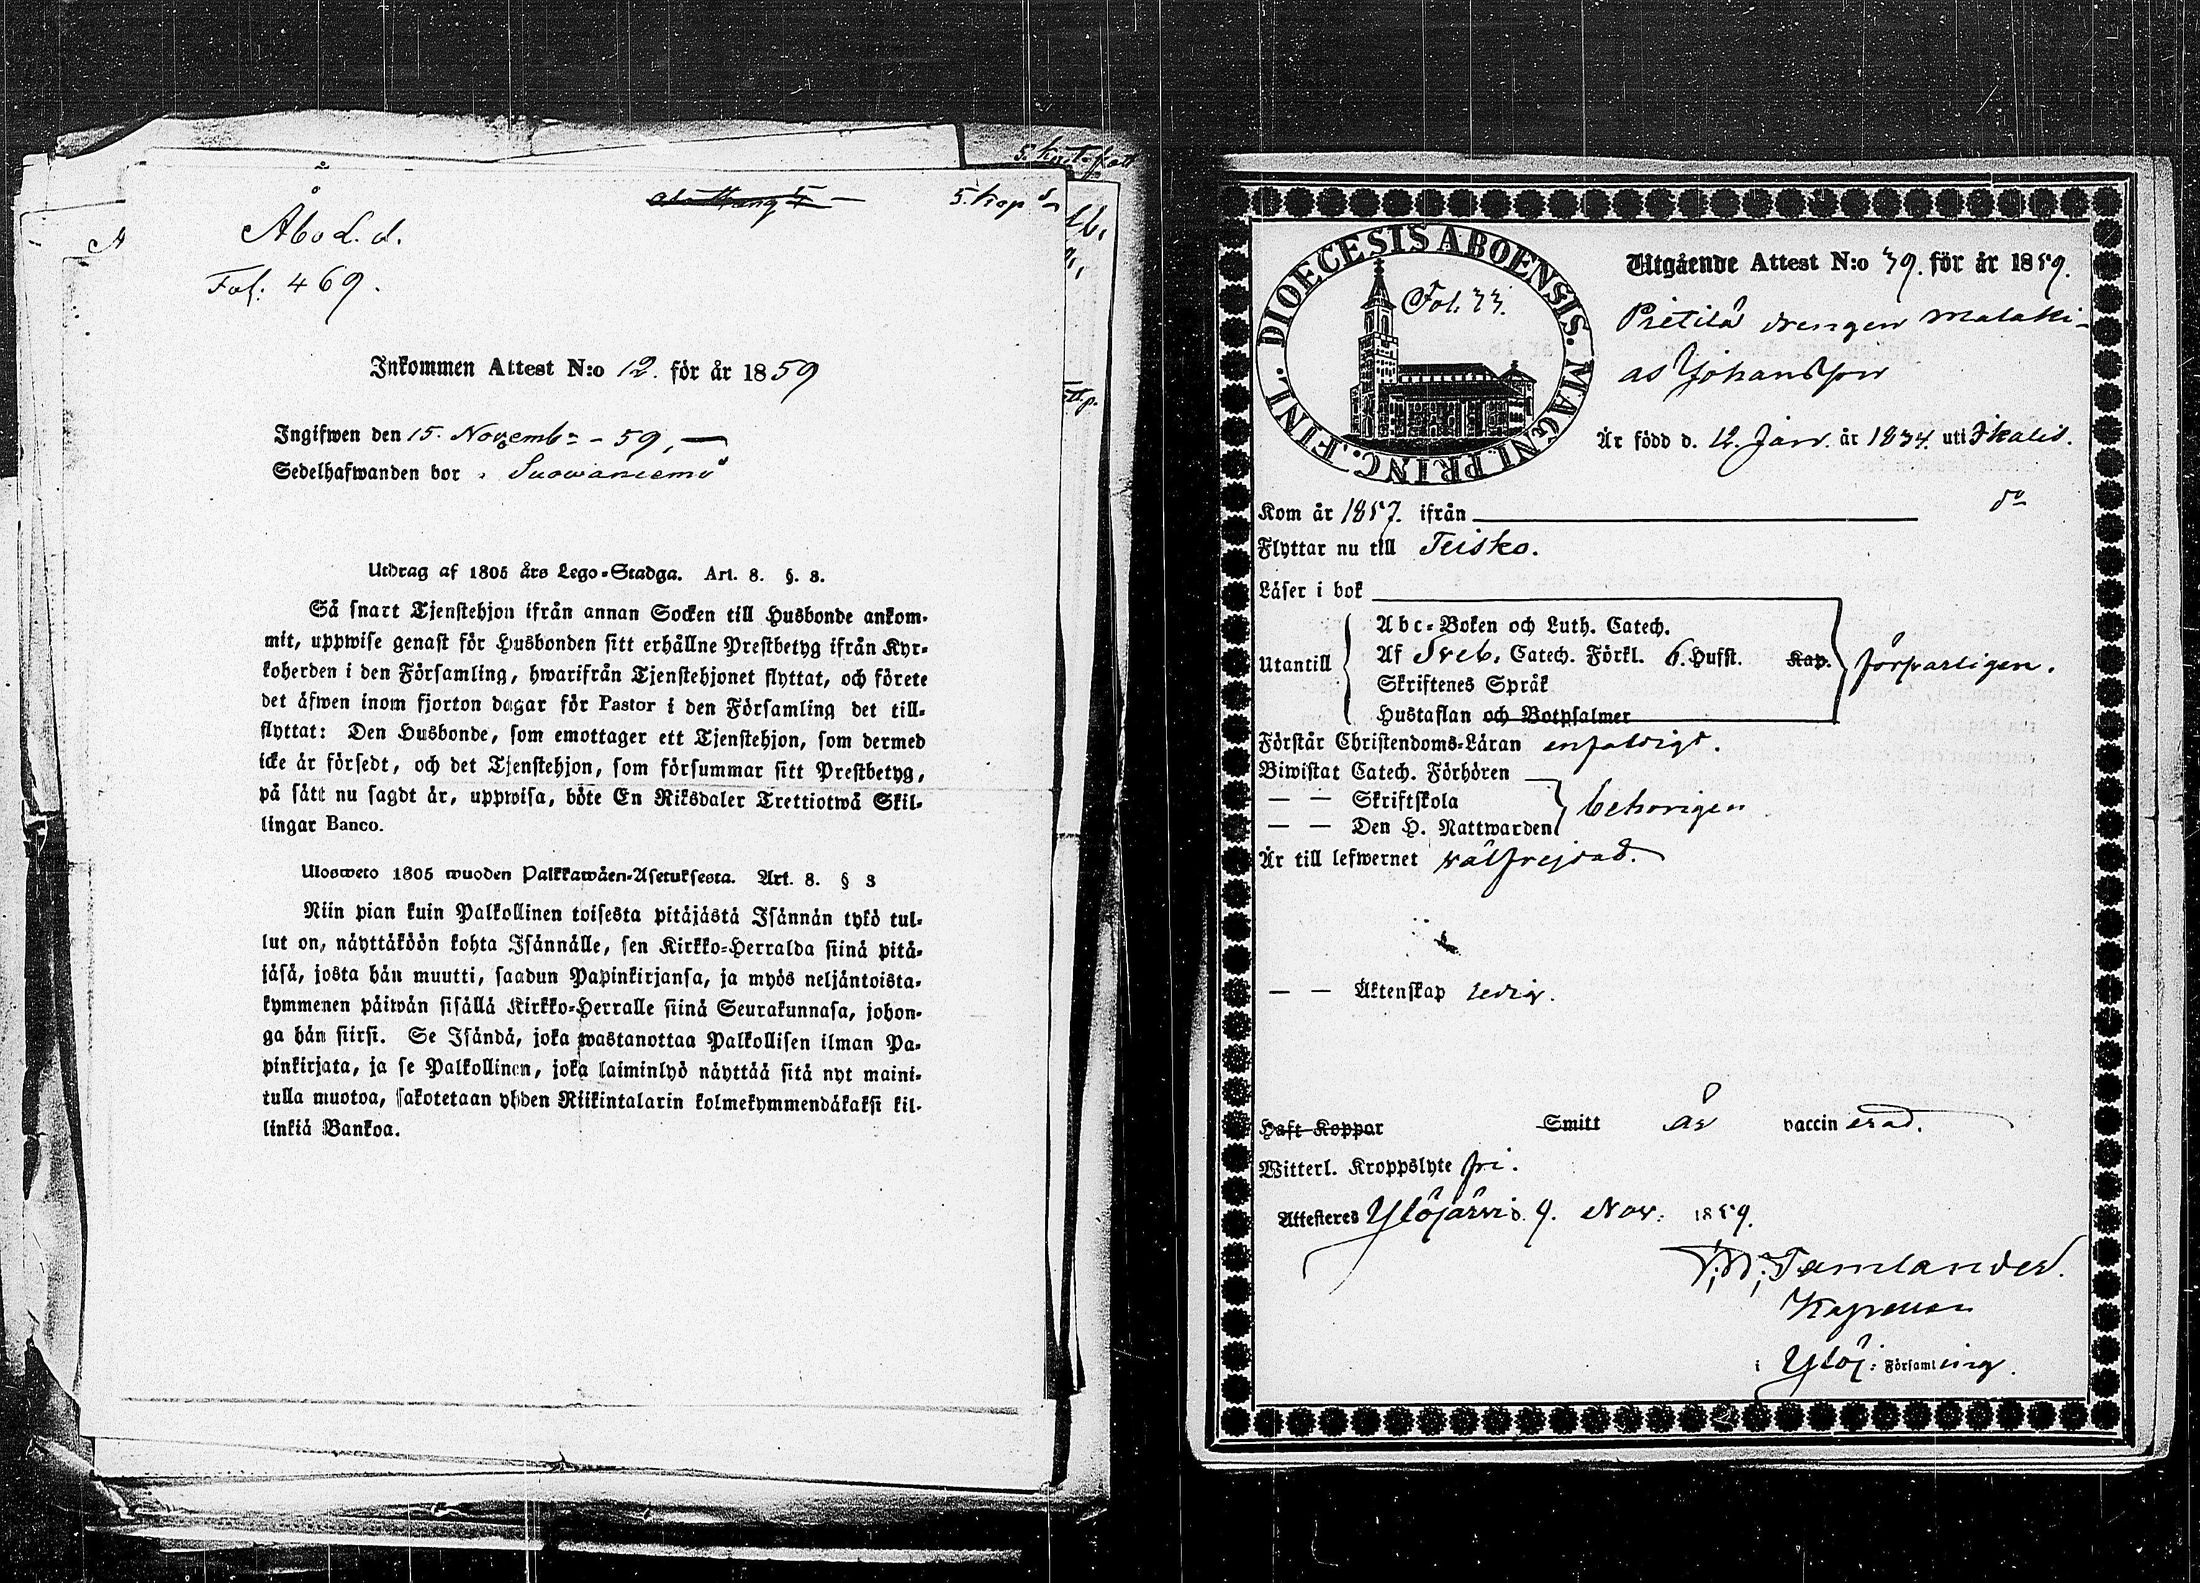 5. kop
Åbo d. d.
Fol: 469.
Inkommen Attest N:o 12. för år 1859
Ingifwen den 15. Novemb: - 59,
Sedelhafwanden bor Suowaniemi
Utdrag af 1805 års Lego-Stadga. Art. 8. §. 3.
Så snart Tjenstehjon ifrån annan Socken till Husbonde ankom-
mit, uppwise genast för Husbonden sitt erhållne Prestbetyg ifrån Kyr-
koherden i den Församling, hwarifrån Tjenstehjonet flyttat, och förete
det äfwen inom fjorton dagar för Pastor i den Församling det till-
flyttat: Den Husbonde, som emottager ett Tjenstehjon, som dermed
icke är försedt, och det Tjenstehjon, som försummar sitt Prestbetyg,
på sätt nu sagdt är, uppwisa, böte En Riksdaler Trettiotwå Skil-
lingar Banco.
Ulosweto 1805 wuoden Palkkawäen-Asetuksesta. Art. 8. § 3
Niin pian kuin Palkollinen toisesta pitäjästä Isännän tykö tul-
lut on, näyttäköön kohta Isännälle, sen Kirkko-Herralda siinä pitä-
jäsä, josta hän muutti, saadun Papinkirjansa, ja myös neljäntoista-
kymmenen päiwän sisällä Kirkko-Herralle siinä Seurakunnasa, johon-
ga hän siirsi. Se Isändä, joka wastanottaa Palkollisen ilman Pa-
pinkirjata, ja se Palkollinen, joka laiminlyö näyttää sitä nyt maini-
tulla muotoa, sakotetaan yhden Riikintalarin kolmekymmendäkaksi kil-
linkiä Bankoa.
DIOECESIS ABOENSIS. MAGNI. PRINC. FINL.
Fol. 33.
Utgående Attest N:o 39. för år 1859.
Pietilä drengen Malaki-
as Johansson
Är född d. 12. Jan. år 1834. uti Ikalis.
Kom år 1857. ifrån do
Flyttar nu till Teisko.
Läser i bok
Abc-Boken och Luth. Catech.
Utantill Af Sveb. Catech. Förkl. 6. Hufst. Kap. försvarligen.
Skriftenes Språk
Hustaflan och Botpsalmer
Förstår Christendoms-Läran enfaldigt.
Biwistat Catech. Förhören
— — Skriftskola behörigen
— — Den H. Nattwarden
Är till lefwernet välfrejdad.
— — Äktenskap ledig.
Haft Koppar Smitt är vaccinerad.
Witterl. Kroppslyte fri.
Attesteres Ylöjärvi d. 9. Nov: 1859.
Tamlander.
Kapellan
i Ylöj: Församling.